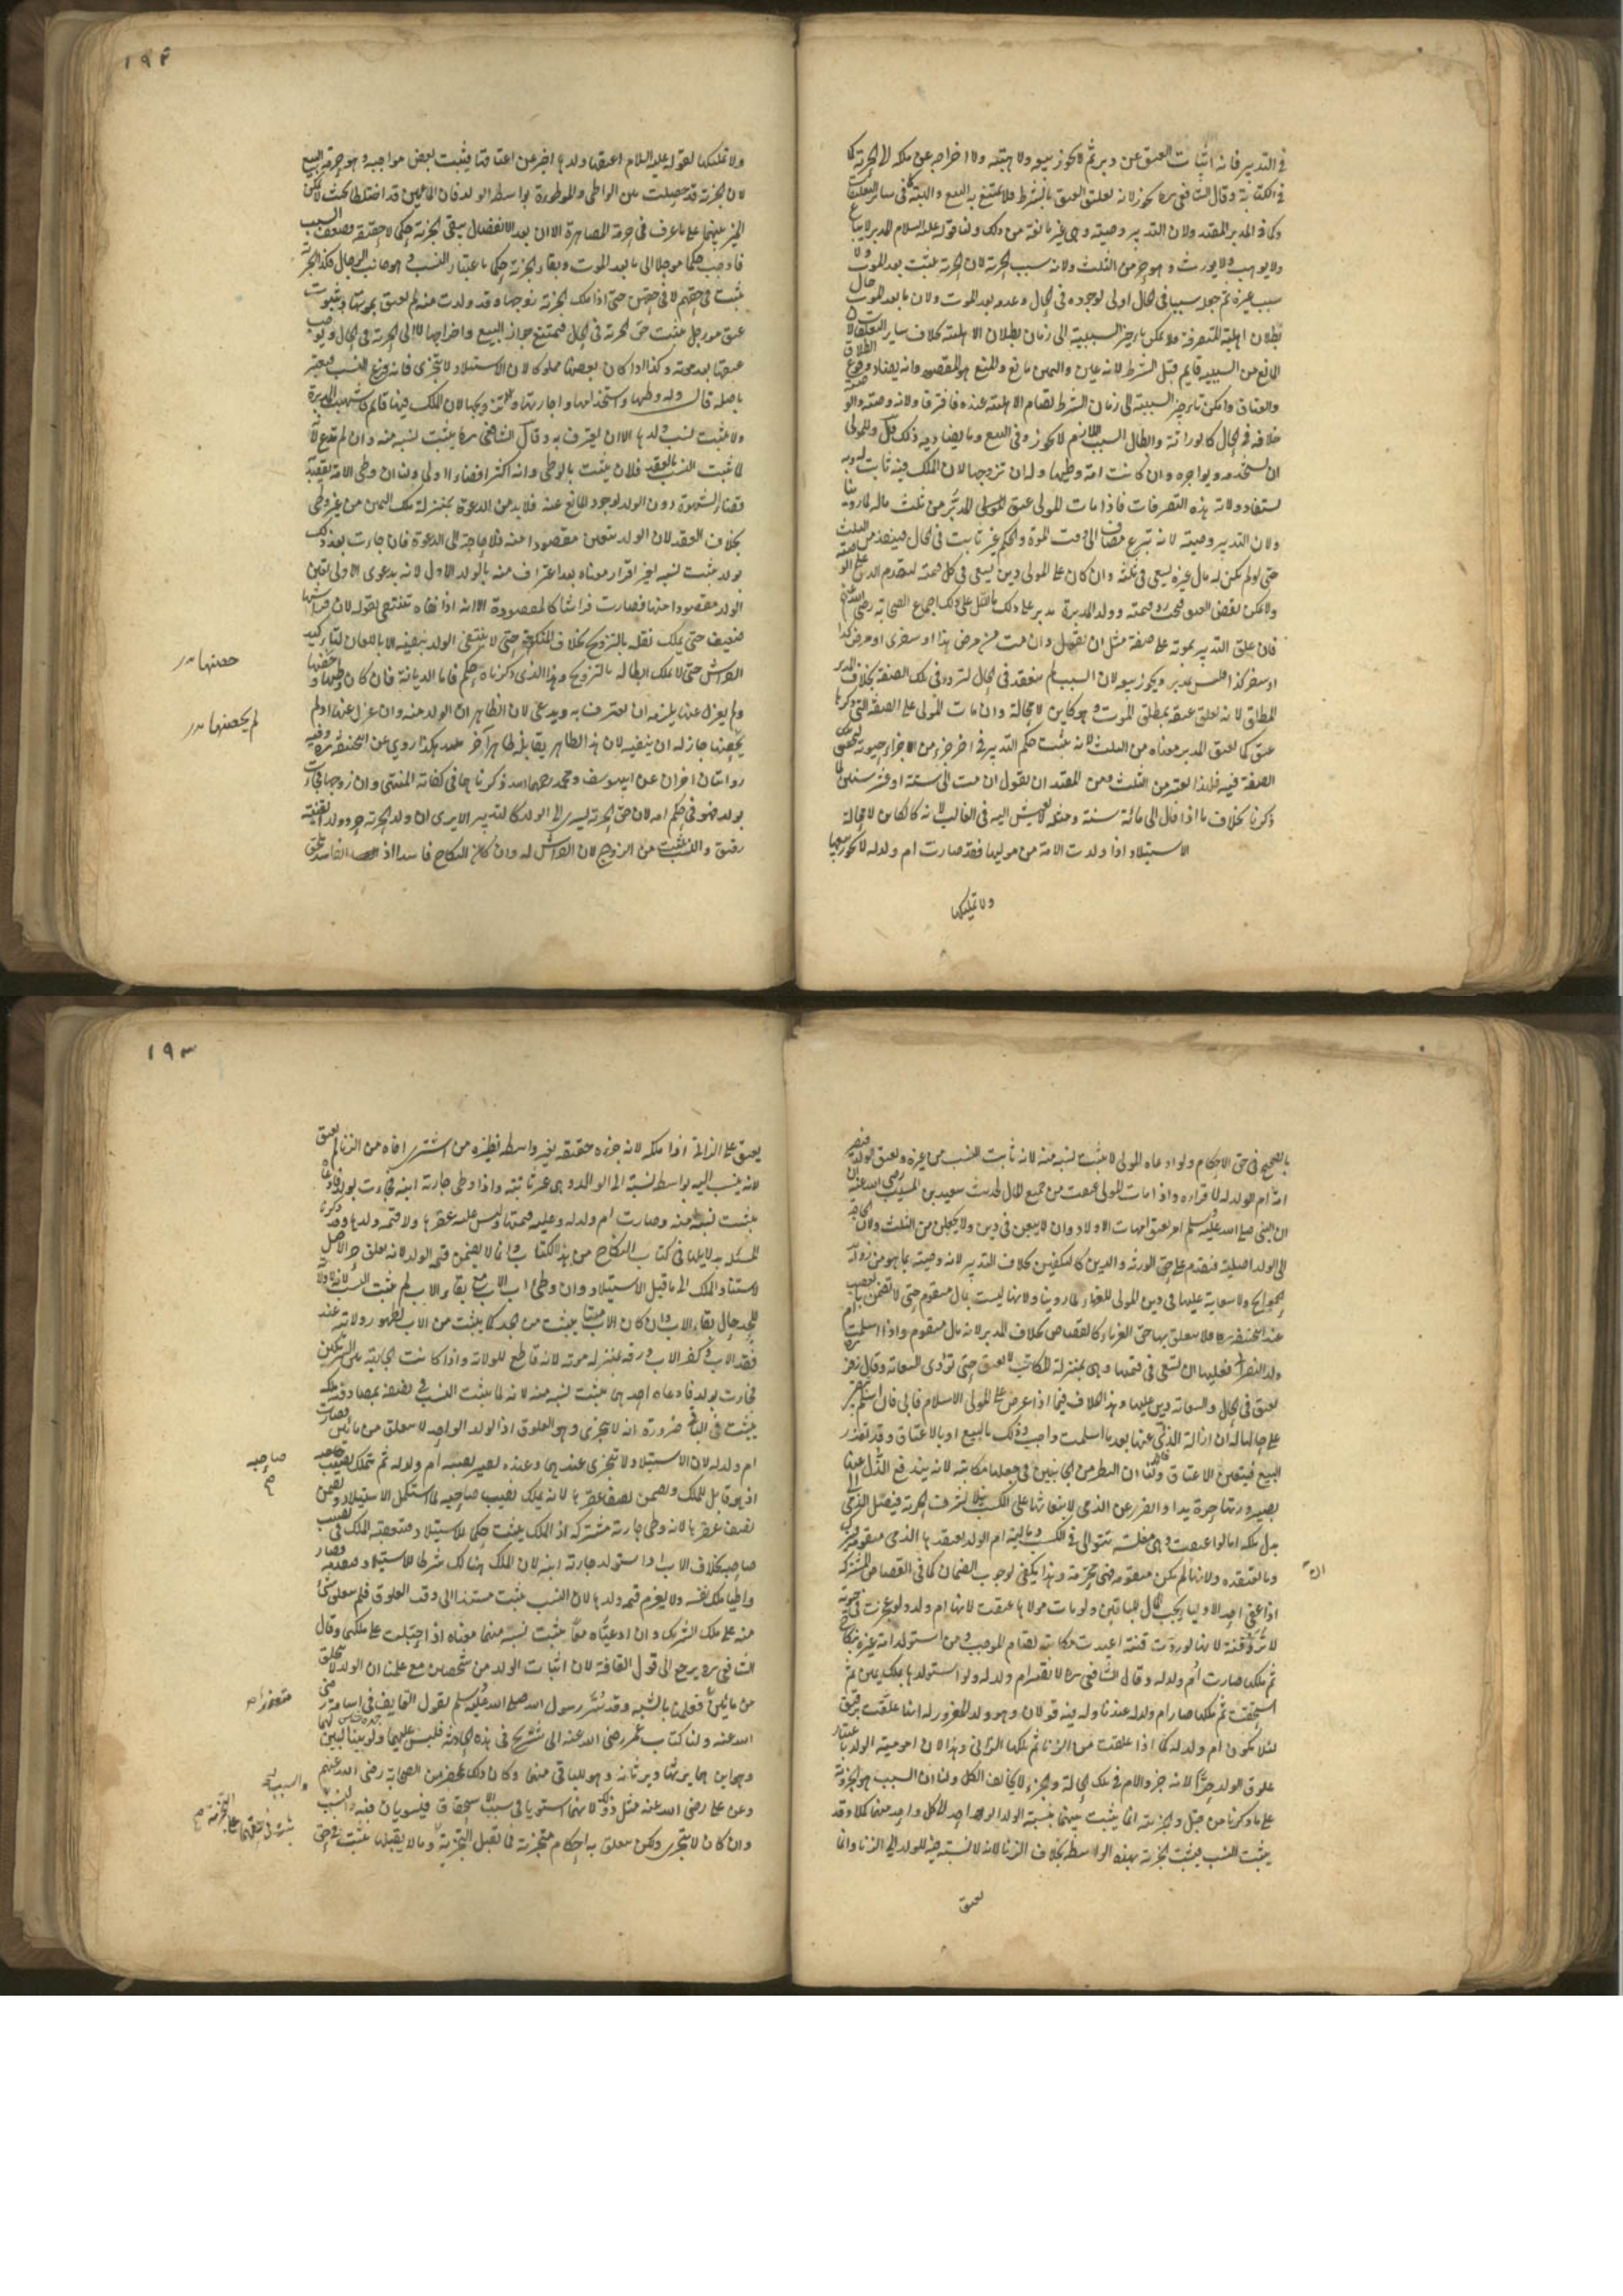 في التدبير فانه اثبات العتق عن دبر ثم لا يجوز بيعه ولا هبته ولا اخراجه عن ملكه الا الى الحرية كما
في الكتابة وقال الشافعي ره يجوز لانه تعليق العتق بالشرط فلا يمتنع به البيع والهبة كما في ساير التعليقات
وكما في المدبر المقيد ولان التدبير وصية وهي غير مانعة من ذلك ولنا قوله عليه السلام المدبر لا يباع
ولا يوهب ولا يورث وهو حر من الثلث ولانه سبب الحرية لان الحرية تثبت بعد الموت ولا
سبب غيره ثم جعله سببا في الحال اولى لوجوده في الحال وعدمه بعد الموت ولان ما بعد الموت حال
بطلان اهلية التصرف فلا يمكن تاخير السببية الى زمان بطلان الاهلية بخلاف ساير التعليقات لان
المانع من السببية قايم قبل الشرط لانه يمين واليمين مانع والمنع هو المقصود وانه يضاد وقوع الطلاق
والعتاق وامكن تاخير السببية الى زمان الشرط لقيام الاهلية عنده فافترقا ولانه وصية والوصية
خلافة في الحال كالوراثة وابطال السبب لا يجوز وفي البيع وما يضاهيه ذلك قال وللمولى
ان يستخدمه ويواجره وان كانت امة وطيها وله ان يزوجها لان الملك فيه ثابت له وبه
يستفاد ولاية هذه التصرفات فاذا مات المولى عتق المدبر من ثلث ماله لما روينا
ولان التدبير وصية لانه تبرع مضاف الى وقت الموت والحكم غير ثابت في الحال فينفذ من الثلث
حتى لو لم يكن له مال غيره يسعى في ثلثيه وان كان على المولى دين يسعى في كل قيمته لتقدم الدين على الوصية
ولا يمكن نقض العتق فيجب رد قيمته وولد المدبرة مدبر على ذلك نقل اجماع الصحابة رضي الله عنهم
فان علق التدبير بموته على صفة مثل ان يقول ان مت من مرضي هذا او سفري او مرض كذا
او سفر كذا فليس بمدبر ويجوز بيعه لان السبب لم ينعقد في الحال لتردد في تلك الصفة بخلاف المدبر
المطلق لانه تعلق عتقه بمطلق الموت وهو كاين لا محالة وان مات المولى على الصفة التي ذكرها
عتق كما يعتق المدبر معناه من الثلث لانه يثبت حكم التدبير في اخر جزء من اجزاء حيوته لتحقق
الصفة فيه فلهذا يعتبر من الثلث ومن المقيد ان يقول ان مت الى سنة او عشر سنين لما
ذكرنا بخلاف ما اذا قال الى مائة سنة ومثله لا يعيش اليه في الغالب لانه كالكاين لا محالة
الاستيلاد اذا ولدت الامة من موليها فقد صارت ام ولد له لا يجوز بيعها
ولا تمليكها
١٩٢
ولا تمليكها لقوله عليه السلام اعتقها ولدها اخبر عن اعتاقها فيثبت بعض مواجبه وهو حرمة البيع
لان الجزئية قد حصلت بين الواطي والموطوءة بواسطة الولد فان المائين قد اختلطا بحيث لا يمكن
الميز بينهما على ما عرف في حرمة المصاهرة الا ان بعد الانفصال يبقى الجزئية حكما لا حقيقة فضعف السبب
فاوجب حكما موجلا الى ما بعد الموت وبقاء الجزئية حكما باعتبار النسب وهو من جانب الرجال فكذا الحرية
تثبت في حقهم لا في حقهن حتى اذا ملكت الحرة زوجها وقد ولدت منه لم يعتق بموتها وبثبوت
عتق موجل يثبت حق الحرية في الحال فيمتنع جواز البيع واخراجها لا الى الحرية في الحال ويوجب
عتقها بعد موته وكذا اذا كان بعضها مملوكا لان الاستيلاد لا يتجزى فانه فرع النسب فيعتبر
باصله قال وله وطيها واستخدامها واجارتها وتزويجها لان الملك فيها قايم فاشبهت المدبرة
ولا يثبت نسب ولدها الا ان يعترف به وقال الشافعي ره يثبت نسبه منه وان لم يدع لانه
لما ثبت النسب بالعقد فلان يثبت بالوطي وانه اكثر افضاء اولى ولنا ان وطي الامة يقصد به
قضاء الشهوة دون الولد لوجود المانع عنه فلا بد من الدعوة بمنزلة ملك اليمين من غير وطي
بخلاف العقد لان الولد يتعين مقصودا منه فلا حاجة الى الدعوة فان جاءت بعد ذلك
بولد يثبت نسبه بغير اقرار معناه بعد اعتراف منه بالولد الاول لانه بدعوى الاول تعين
الولد مقصودا منها فصارت فراشا كالمعقودة الا انه اذا نفاه ينتفي بقوله لان فراشها
ضعيف حتى يملك نقله بالتزويج بخلاف المنكوحة حتى لا ينتفي الولد بنفيه الا باللعان لتاكيد
الفراش حتى لا يملك ابطاله بالتزويج وهذا الذي ذكرناه حكم فاما الديانة فان كان وطيها وحصنها
ولم يعزل عنها يلزمه ان يعترف به ويدعي لان الظاهر ان الولد منه وان عزل عنها او لم
يحصنها جاز له ان ينفيه لان هذا الظاهر يقابله ظاهر اخر هكذا روي عن ابي حنيفة ره وفيه
روايتان اخريان عن ابي يوسف ومحمد رحمهما الله ذكرناهما في كفاية المنتهى وان زوجها فجاءت
بولد فهو في حكم امه لان حق الحرية يسري الى الولد كالتدبير الا يرى ان ولد الحرة حر وولد القنة
رقيق والنسب يثبت من الزوج لان الفراش له وان كان النكاح فاسدا اذ الفاسد ملحق
حصنها
لم يحصنها
بالصحيح في حق الاحكام ولو ادعاه المولى لا يثبت نسبه منه لانه ثابت النسب من غيره ويعتق الولد وتصير
امه ام ولد له لاقراره واذا مات المولى عتقت من جميع المال لحديث سعيد بن المسيب رضي الله عنه
ان النبي صلى الله عليه وسلم امر بعتق امهات الاولاد وان لا يبعن في دين ولا يجعلن من الثلث ولان الحاجة
الى الولد اصلية فتقدم على حق الورثة والدين كالتكفين بخلاف التدبير لانه وصية بما هو من زوايد
الحوايج ولا سعاية عليها في دين المولى للغرماء لما روينا ولانها ليست بمال متقوم حتى لا تضمن بالغصب
عند ابي حنيفة ره فلا يتعلق بها حق الغرماء كالقصاص بخلاف المدبر لانه مال متقوم واذا اسلمت ام
ولد النصراني فعليها ان تسعى في قيمتها وهي بمنزلة المكاتب لا تعتق حتى تؤدي السعاية وقال زفر
تعتق في الحال والسعاية دين عليها وهذا الخلاف فيما اذا عرض على المولى الاسلام فابى فان اسلم تبقى
على حالها له ان ازالة الذل عنها بعد ما اسلمت واجب وذلك بالبيع او بالاعتاق وقد تعذر
البيع فيتعين الاعتاق ولنا ان النظر من الجانبين في جعلها مكاتبة لانه يندفع الذل عنها
بصيرورتها حرة يدا والضرر عن الذمي لانبعاثها على الكسب نيلا لشرف الحرية فيصل الذمي الى
بدل ملكه اما لو اعتقت وهي مفلسة تتوانى في الكسب ومالية ام الولد يعتقدها الذمي متقومة فيترك
وما يعتقده ولانها ان لم تكن متقومة فهي محترمة وهذا يكفي لوجوب الضمان كما في القصاص المشترك
اذا عفى احد الاولياء يجب المال للباقين ولو مات مولاها عتقت لانها ام ولد ولو عجزت في حيوته
لا ترد قنة لانها لو ردت قنة اعيدت مكاتبة لقيام الموجب ومن استولد امة غيره بنكاح
ثم ملكها صارت ام ولد له وقال الشافعي ره لا تصير ام ولد له ولو استولدها بملك يمين ثم
استحقت ثم ملكها صار ام ولد له عندنا وله فيه قولان وهو ولد المغرور له انها علقت برقيق
فلا تكون ام ولد له كما اذا علقت من الزنا ثم ملكها الزاني وهذا لان امومية الولد باعتبار
علوق الولد حرا لانه جزء الام في تلك الحالة والجزء لا يخالف الكل ولنا ان السبب هو الجزئية
على ما ذكرنا من قبل والجزئية انما يثبت بينهما بنسبة الولد الواحد الى كل واحد منهما كملا وقد
يثبت النسب فيثبت الجزئية بهذه الواسطة بخلاف الزنا لانه لا نسبة فيه للولد الى الزنا وانما
يعتق
١٩٣
يعتق على الزاني اذا ملكه لانه جزءه حقيقة بغير واسطة نظيره من اشترى اخاه من الزنا لا يعتق
لانه ينسب اليه بواسطة نسبة الى الوالد وهي غير ثابتة واذا وطي جارية ابنه فجاءت بولد فادعاه
يثبت نسبه منه وصارت ام ولد له وعليه قيمتها وليس عليه عقرها ولا قيمة ولدها وقد ذكرنا
المسئلة بدلايلها في كتاب النكاح من هذا الكتاب وانما لا يضمن قيمة الولد لانه تعلق حر الاصل
لاستناد الملك الى ما قبل الاستيلاد وان وطي اب الاب مع بقاء الاب لم يثبت النسب لانه لا ولاية
للجد حال بقاء الاب وان كان الاب ميتا يثبت من الجد كما يثبت من الاب لظهور ولايته عند
فقد الاب وكفر الاب ورقه بمنزلة موته لانه قاطع للولاية واذا كانت الجارية بين شريكين
فجاءت بولد فادعاه احدهما يثبت نسبه منه لانه لما يثبت النسب في نصفه بمصادفة ملكه
يثبت في الباقي ضرورة انه لا يتجزى وهو العلوق اذ الولد الواحد لا يتعلق من مائين وصارت
ام ولد له لان الاستيلاد لا يتجزى عندهما وعنده يصير نصيبه ام ولد له ثم يتملك نصيب صاحبه
اذ هو قابل للملك ويضمن نصف عقرها لانه يملك نصيب صاحبه لما استكمل الاستيلاد ويضمن
نصف عقرها لانه وطي جارية مشتركة اذ الملك يثبت حكما للاستيلاد فيتعقبه الملك في نصيب
صاحبه بخلاف الاب اذا استولد جارية ابنه لان الملك هنالك شرطا للاستيلاد فيتقدمه فصار
واطيا ملك نفسه ولا يغرم قيمة ولدها لان النسب يثبت مستندا الى وقت العلوق فلم يتعلق شئ
منه على ملك الشريك وان ادعياه معا يثبت نسبه منهما معناه اذا حبلت على ملكهما وقال
الشافعي ره يرجع الى قول القافة لان اثبات الولد من شخصين مع علمنا ان الولد لا يتخلق
من مائين متعذر فعلمنا بالشبه وقد سر رسول الله صلى الله عليه وسلم بقول القايف في اسامة رضي
الله عنه ولنا كتاب عمر رضي الله عنه الى شريح في هذه الحادثة لبسا فلبس عليهما ولو بينا لبين لهما
وهو ابنهما يرثهما ويرثانه وهو للباقي منهما وكان ذلك بمحضر من الصحابة رضي الله عنهم
وعن علي رضي الله عنه مثل ذلك لانهما استويا في سبب الاستحقاق فيستويان فيه والنسب
وان كان لا يتجزى ولكن يتعلق به احكام متجزية فما يقبل التجزية وما لا يقبلها يثبت في حق
صاحبه
متعذر